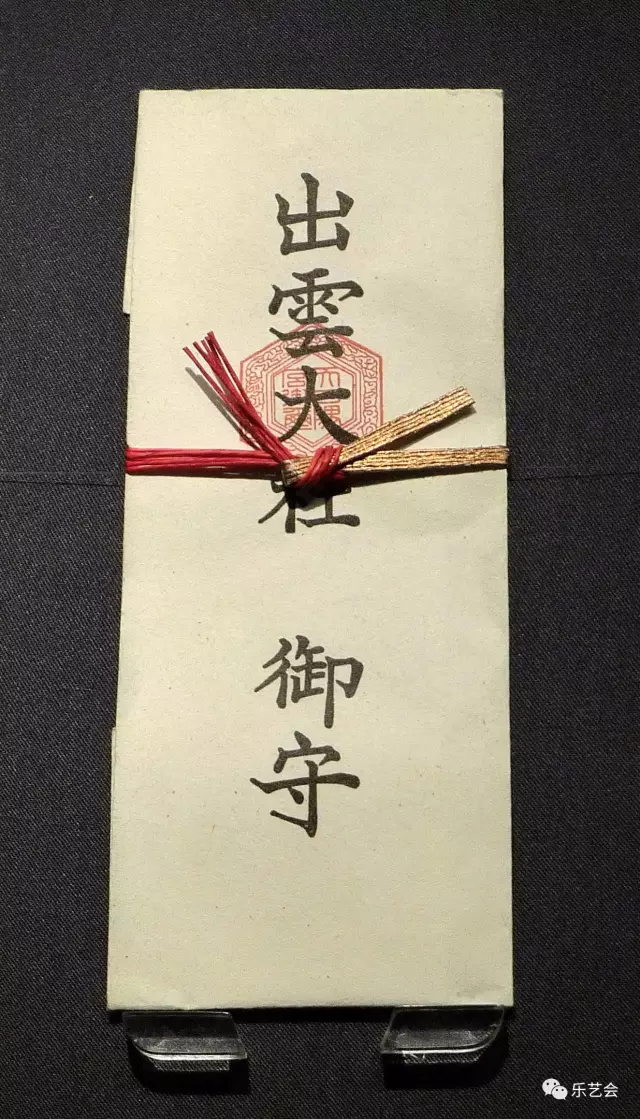 出雲大社 御守
乐艺会